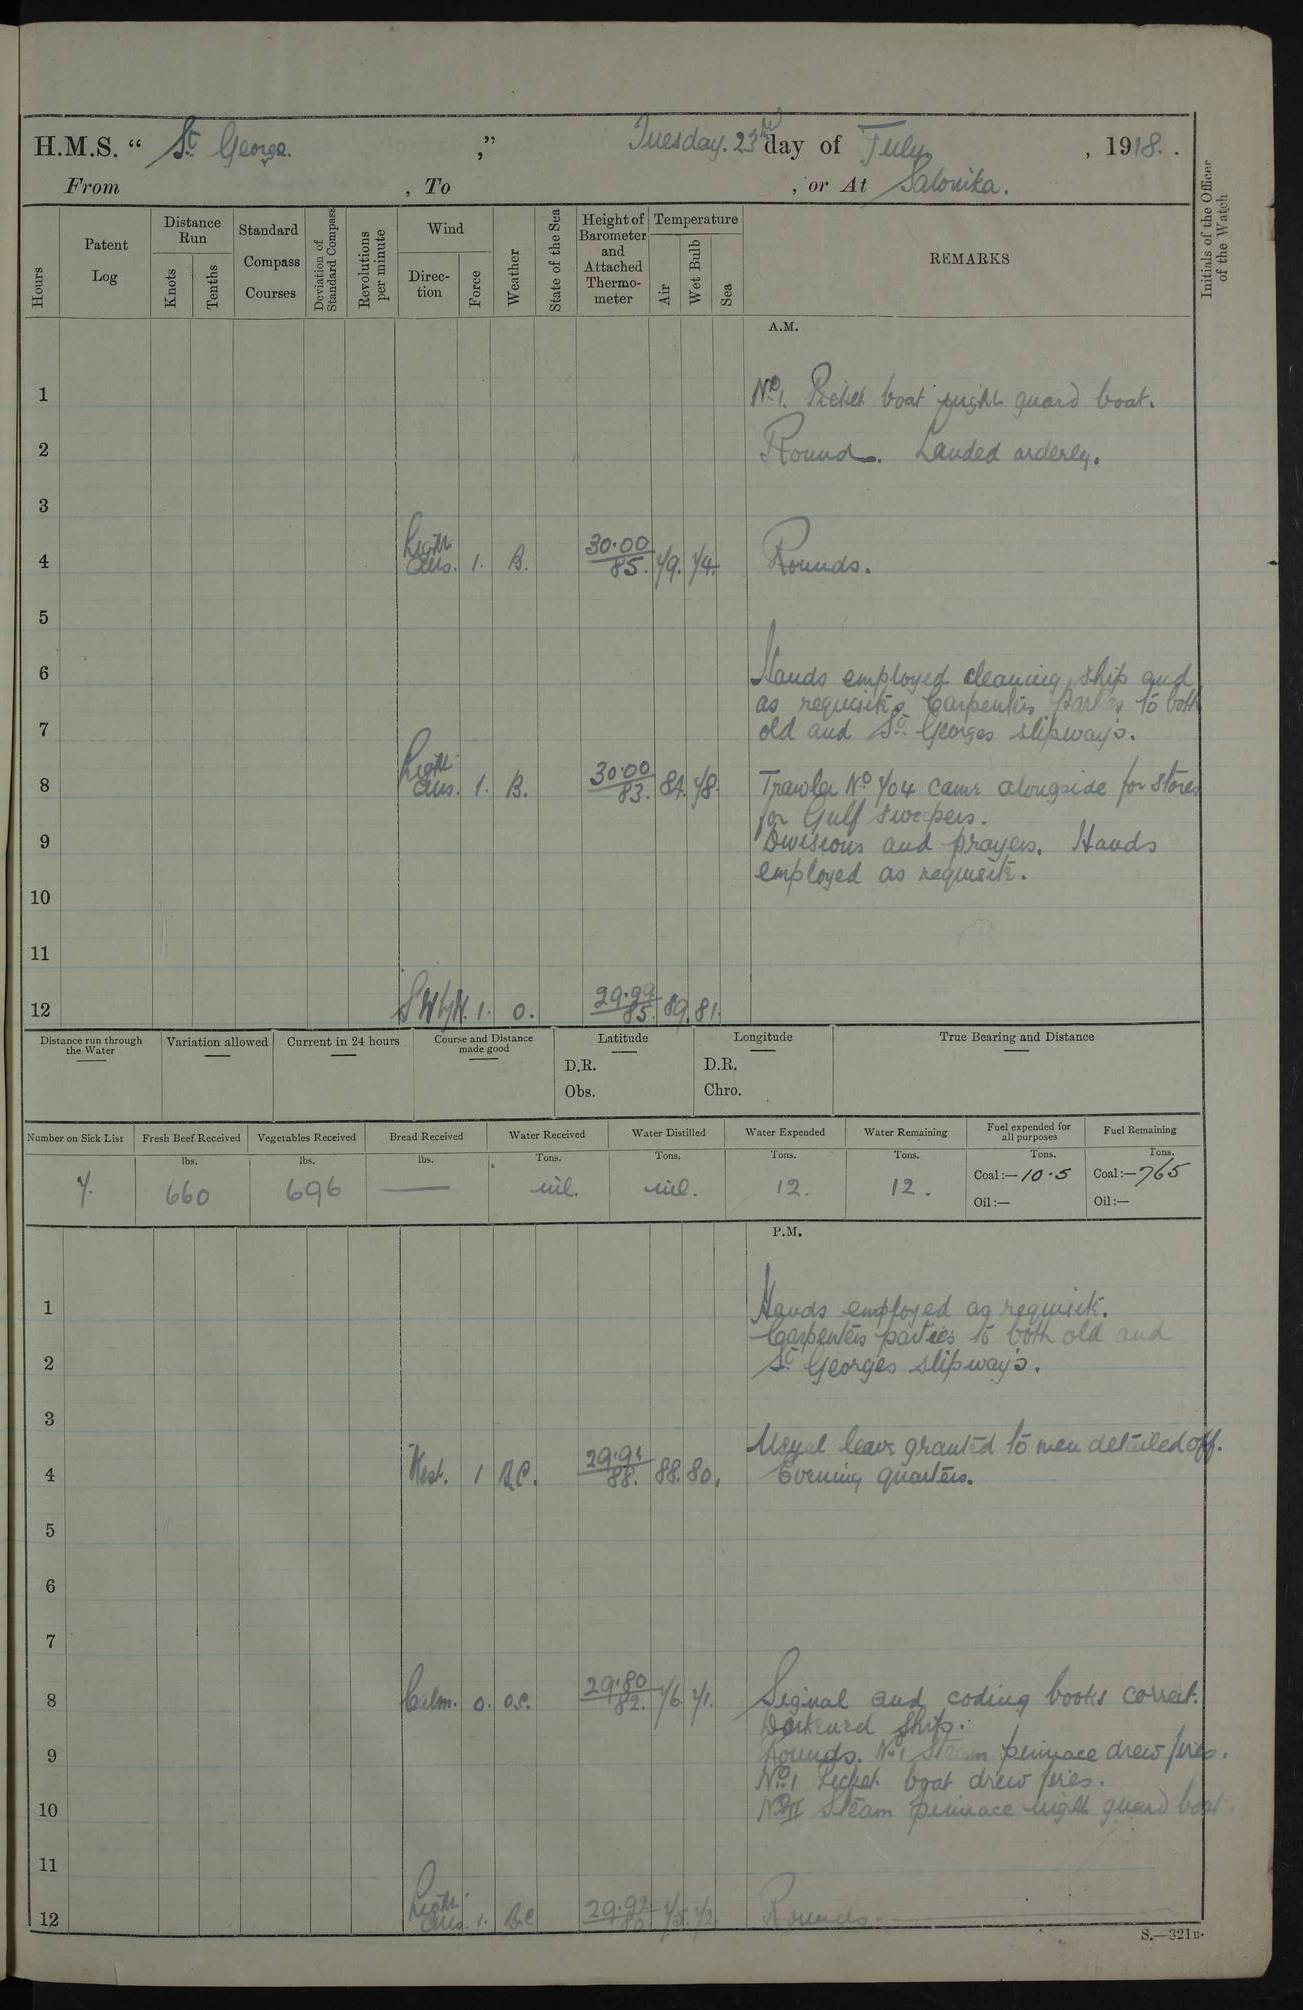 H.M.S. “ St George. ,” Tuesday. 23rd day of July , 1918.
From , To , or At Salonika.
Hours
Patent Log
Distance Run
Knots
Tenths
Standard Compass Courses
Deviation of Standard Compass
Revolutions per minute
Wind
Direc- tion
Force
Weather
State of the Sea
Height of Barometer and Attached Thermo- meter
Temperature
Air
Wet Bulb
Sea
REMARKS
Initials of the Officer of the Watch
A.M.
1 No 1. Picket boat night guard boat.
2 Rounds. Landed orderly.
3
4 Light airs. 1. B. 30.00 85. 79. 74. Rounds.
5
6 Hands employed cleaning ship and
as requisite Carpenters parties to both
7 old and St. Georges slipways.
8 Light airs. 1. B. 30.00 83. 84. 78. Trawler No 704 came alongside for stores
for Gulf sweepers.
9 Divisions and prayers. Hands
employed as requisite.
10
11
12 SWbyW. 1. O. 29.99 85. 89. 81.
Distance run through the Water
Variation allowed
Current in 24 hours
Course and Distance made good
Latitude
D.R.
Obs.
Longitude
D.R.
Chro.
True Bearing and Distance
Number on Sick List
Fresh Beef Received
Vegetables Received
Bread Received
Water Received
Water Distilled
Water Expended
Water Remaining
Fuel expended for all purposes
Fuel Remaining
lbs. lbs. lbs. Tons. Tons. Tons. Tons. Tons. Tons.
7. 660 696 — nil. nil. 12. 12. Coal:— 10.5 Coal:— 765
Oil:— Oil:—
P.M.
1 Hands employed as requisite.
Carpenters parties to both old and
2 St Georges slipways.
3
Usual leave granted to men detailed off.
4 West. 1 B.C. 29.94 88. 88. 80. Evening quarters.
5
6
7
8 Calm. 0. O.C. 29.80 82. 76. 71. Signal and coding books correct.
Darkened ship.
9 Rounds. No 1 Steam pinnace drew fires.
No 1 Picket boat drew fires.
10 No II Steam pinnace night guard boat.
11
12 Light airs. 1. B.C 29.92 80 75. 72. Rounds.
S.—321B.